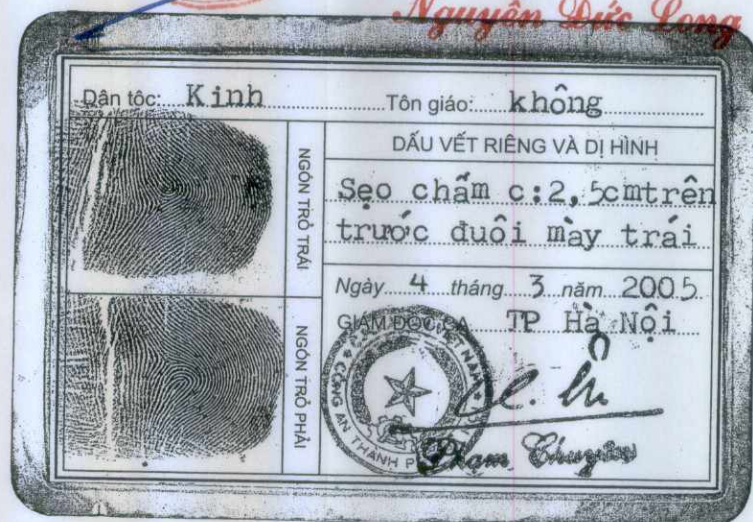 Nguyễn Đức Long
Dân tộc: Kinh Tôn giáo: không
NGÓN TRỎ TRÁI
DẤU VẾT RIÊNG VÀ DỊ HÌNH
Sẹo chấm c:2,5cmtrên
trước đuôi mày trái
Ngày 4 tháng 3 năm 2005
GIÁM ĐỐC CA TP Hà Nội
NGÓN TRỎ PHẢI
CÔNG AN THÀNH P
Phạm Chuyên